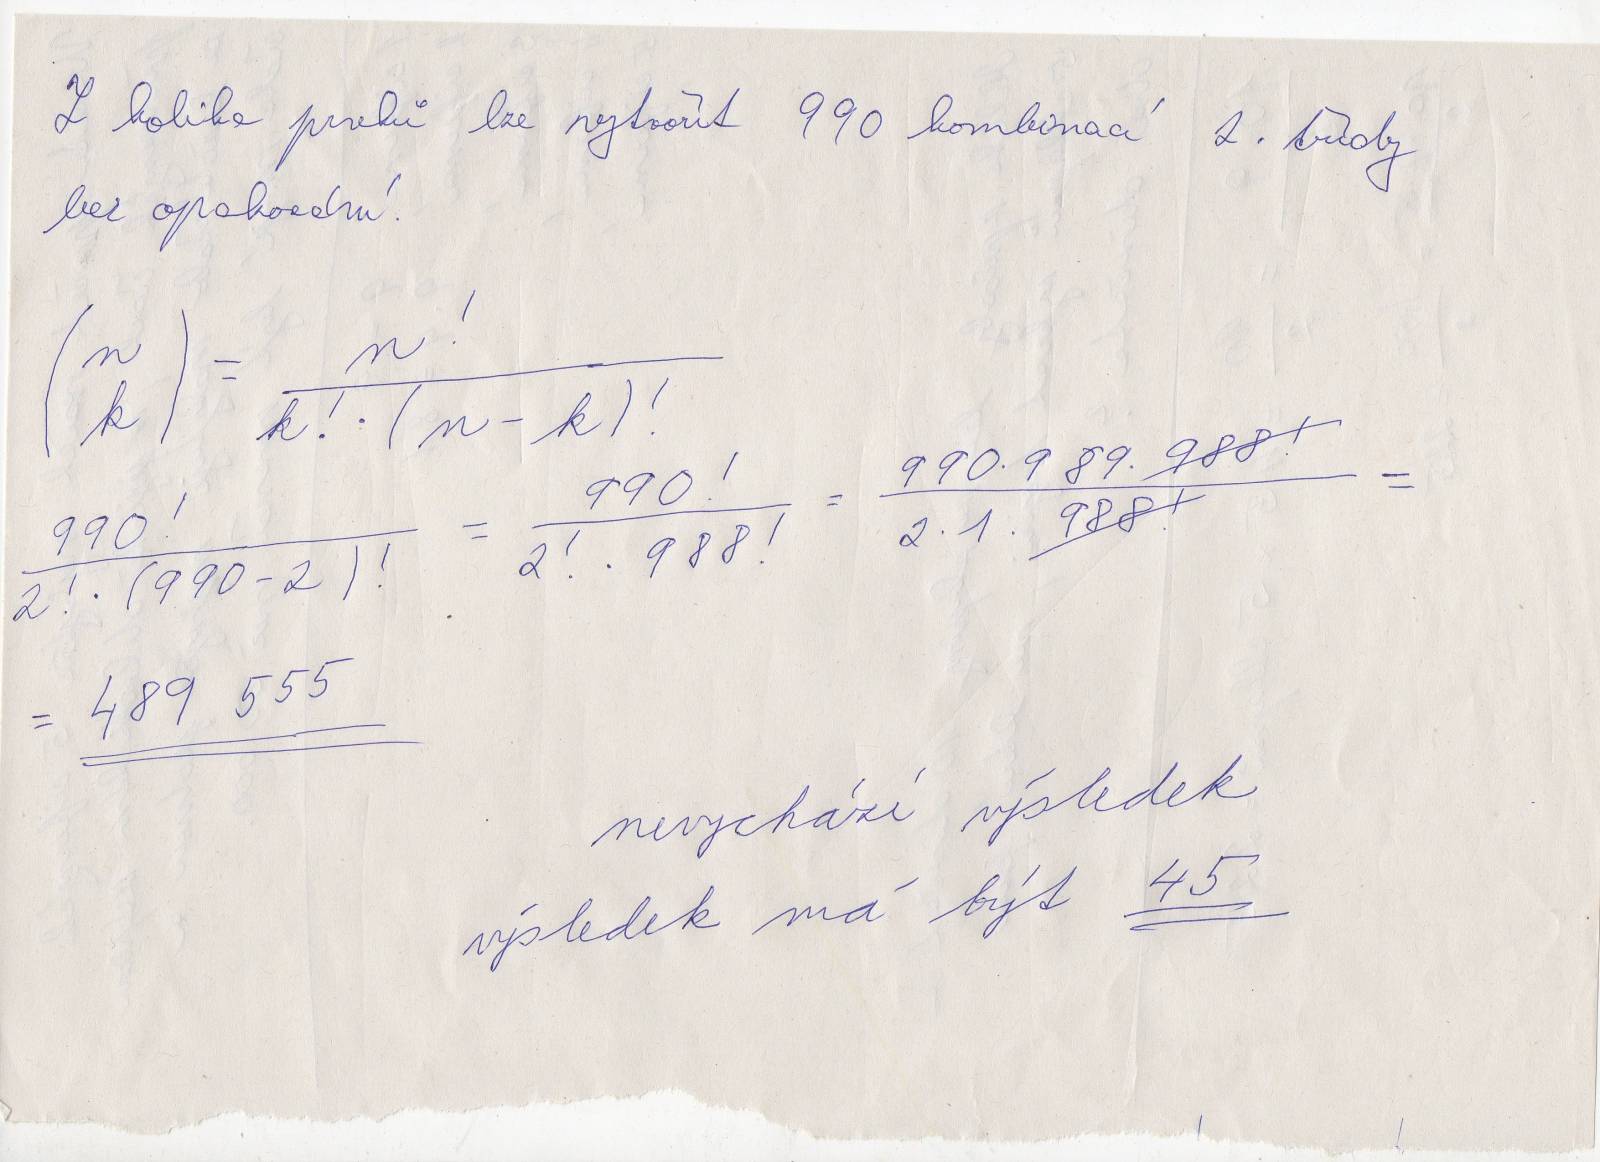 Z kolika prvků lze vytvořit 990 kombinací 2. třídy
bez opakování.
(n k) = n! / k! · (n - k)!
990! / 2! · (990 - 2)! = 990! / 2! · 988! = 990 · 989 · 988! / 2 · 1 · 988! =
= 489 555
nevychází výsledek
výsledek má být 45